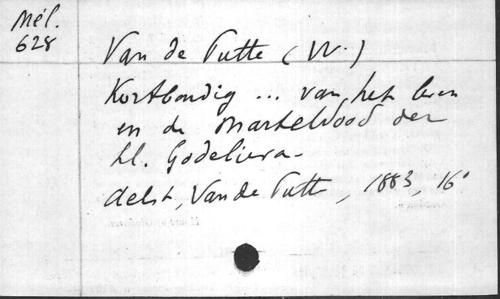 Mél.
628
Van de Putte (W.)
Kortbondig ... van het leven
en de Marteldood der
hl. Godelieva.
delst, Van de Putte, 1883, 16°